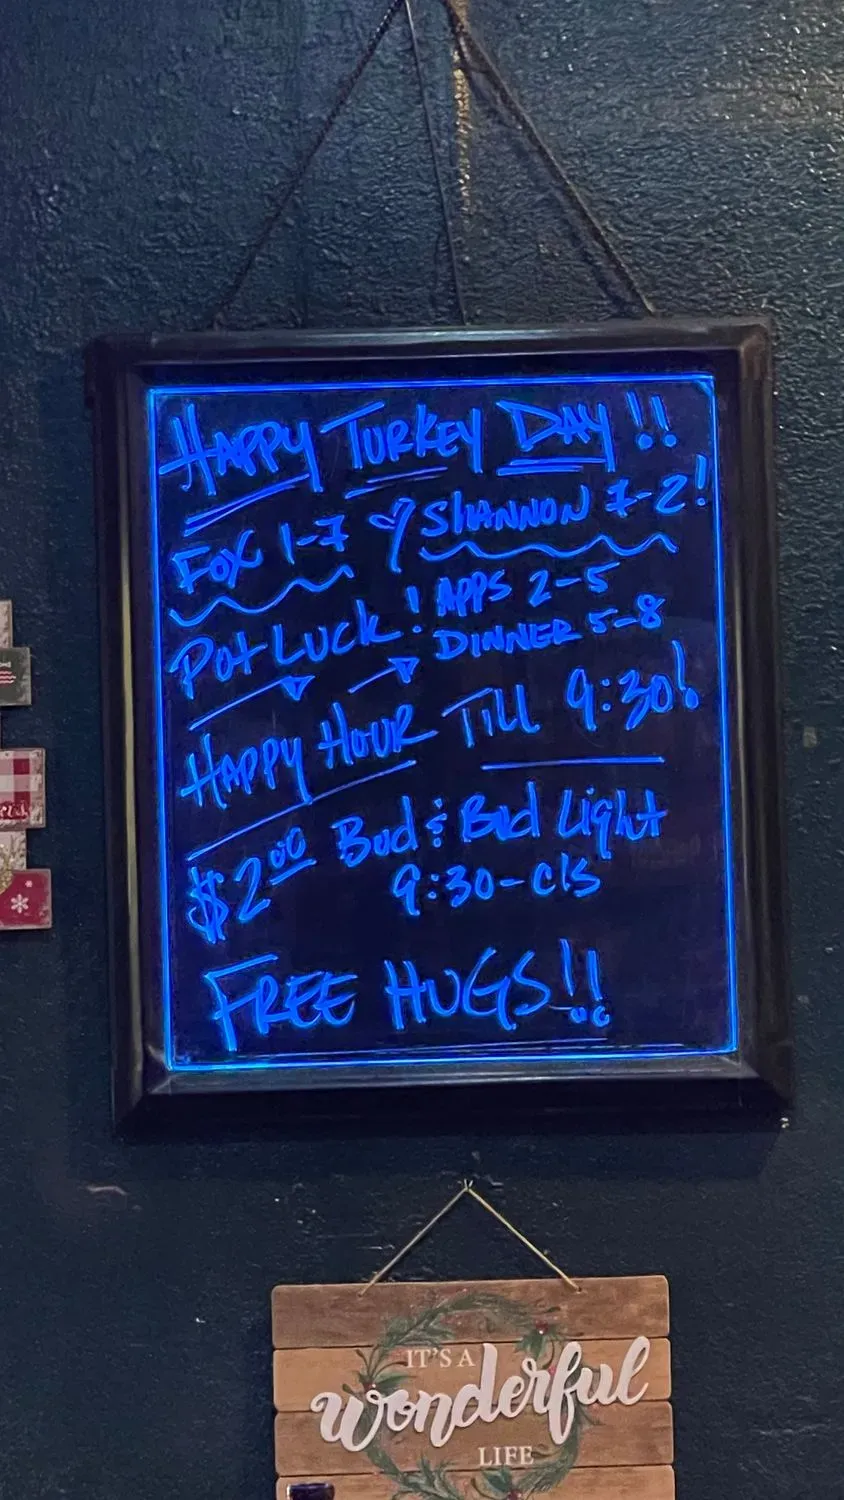 HAPPY TURKEY DAY!!
FOX 1-7 ♡ SHANNON 7-2!
Pot Luck! APPS 2-5
DINNER 5-8
HAPPY HOUR TILL 9:30!
$2.00 Bud & Bud Light
9:30-cls
FREE HUGS!!
IT'S A
wonderful
LIFE